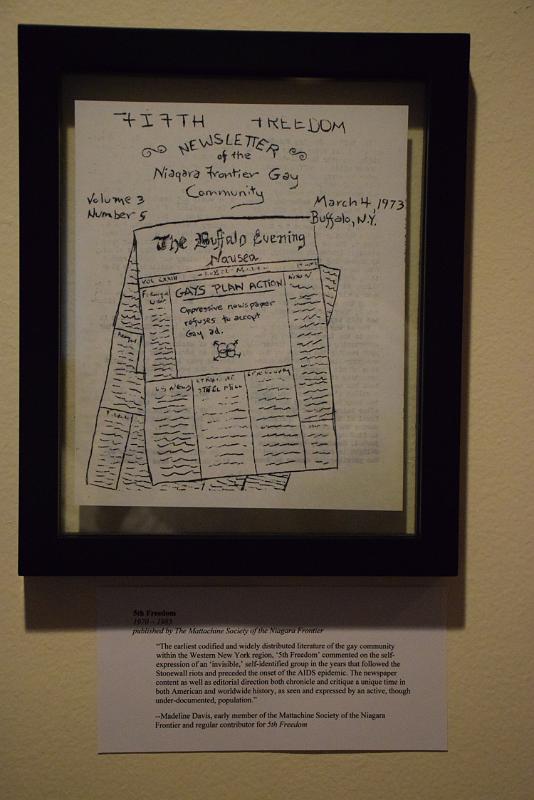 FIFTH FREEDOM
NEWSLETTER
of the
Niagara Frontier Gay
Community
Volume 3
Number 5
March 4, 1973
Buffalo, N.Y.
The Buffalo Evening
Nausea
VOL
GAYS PLAN ACTION
Oppressive newspaper
refuses to accept
Gay ad.
US NEWS
STEEL MILL
5th Freedom
1970 – 1983
published by The Mattachine Society of the Niagara Frontier
"The earliest codified and widely distributed literature of the gay community
within the Western New York region, '5th Freedom' commented on the self-
expression of an 'invisible,' self-identified group in the years that followed the
Stonewall riots and preceded the onset of the AIDS epidemic. The newspaper
content as well as editorial direction both chronicle and critique a unique time in
both American and worldwide history, as seen and expressed by an active, though
under-documented, population."
--Madeline Davis, early member of the Mattachine Society of the Niagara
Frontier and regular contributor for 5th Freedom